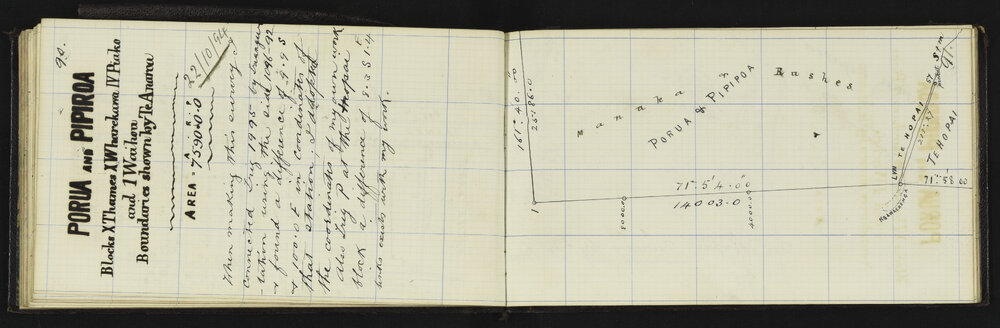 90.
PORUA AND PIPIROA
Blocks X Thames X Wharekawa IV Piako
and I Waihou
Boundaries shown by Te Anaroa
A. R. P.
AREA = 7590.0.0
22/10/94
When making this survey
connected Trig 1995 by triangu
-lation using the said 1096-92
& found a difference of 9.9 S
& 100.0 E in coordinates of
that station; I adopted
the coordinates of my own work
also Trig P at the Hopai
block a difference of 8.3 S 1.4
links exists with my work.
161°.40.00
25186.0
Manuka & Rushes
PORUA & PIPIROA
71°.54.00
14003.0
8000.00
4000.00
LVII
TE HOPAI
TE HOPAI
71°.58.00
91.